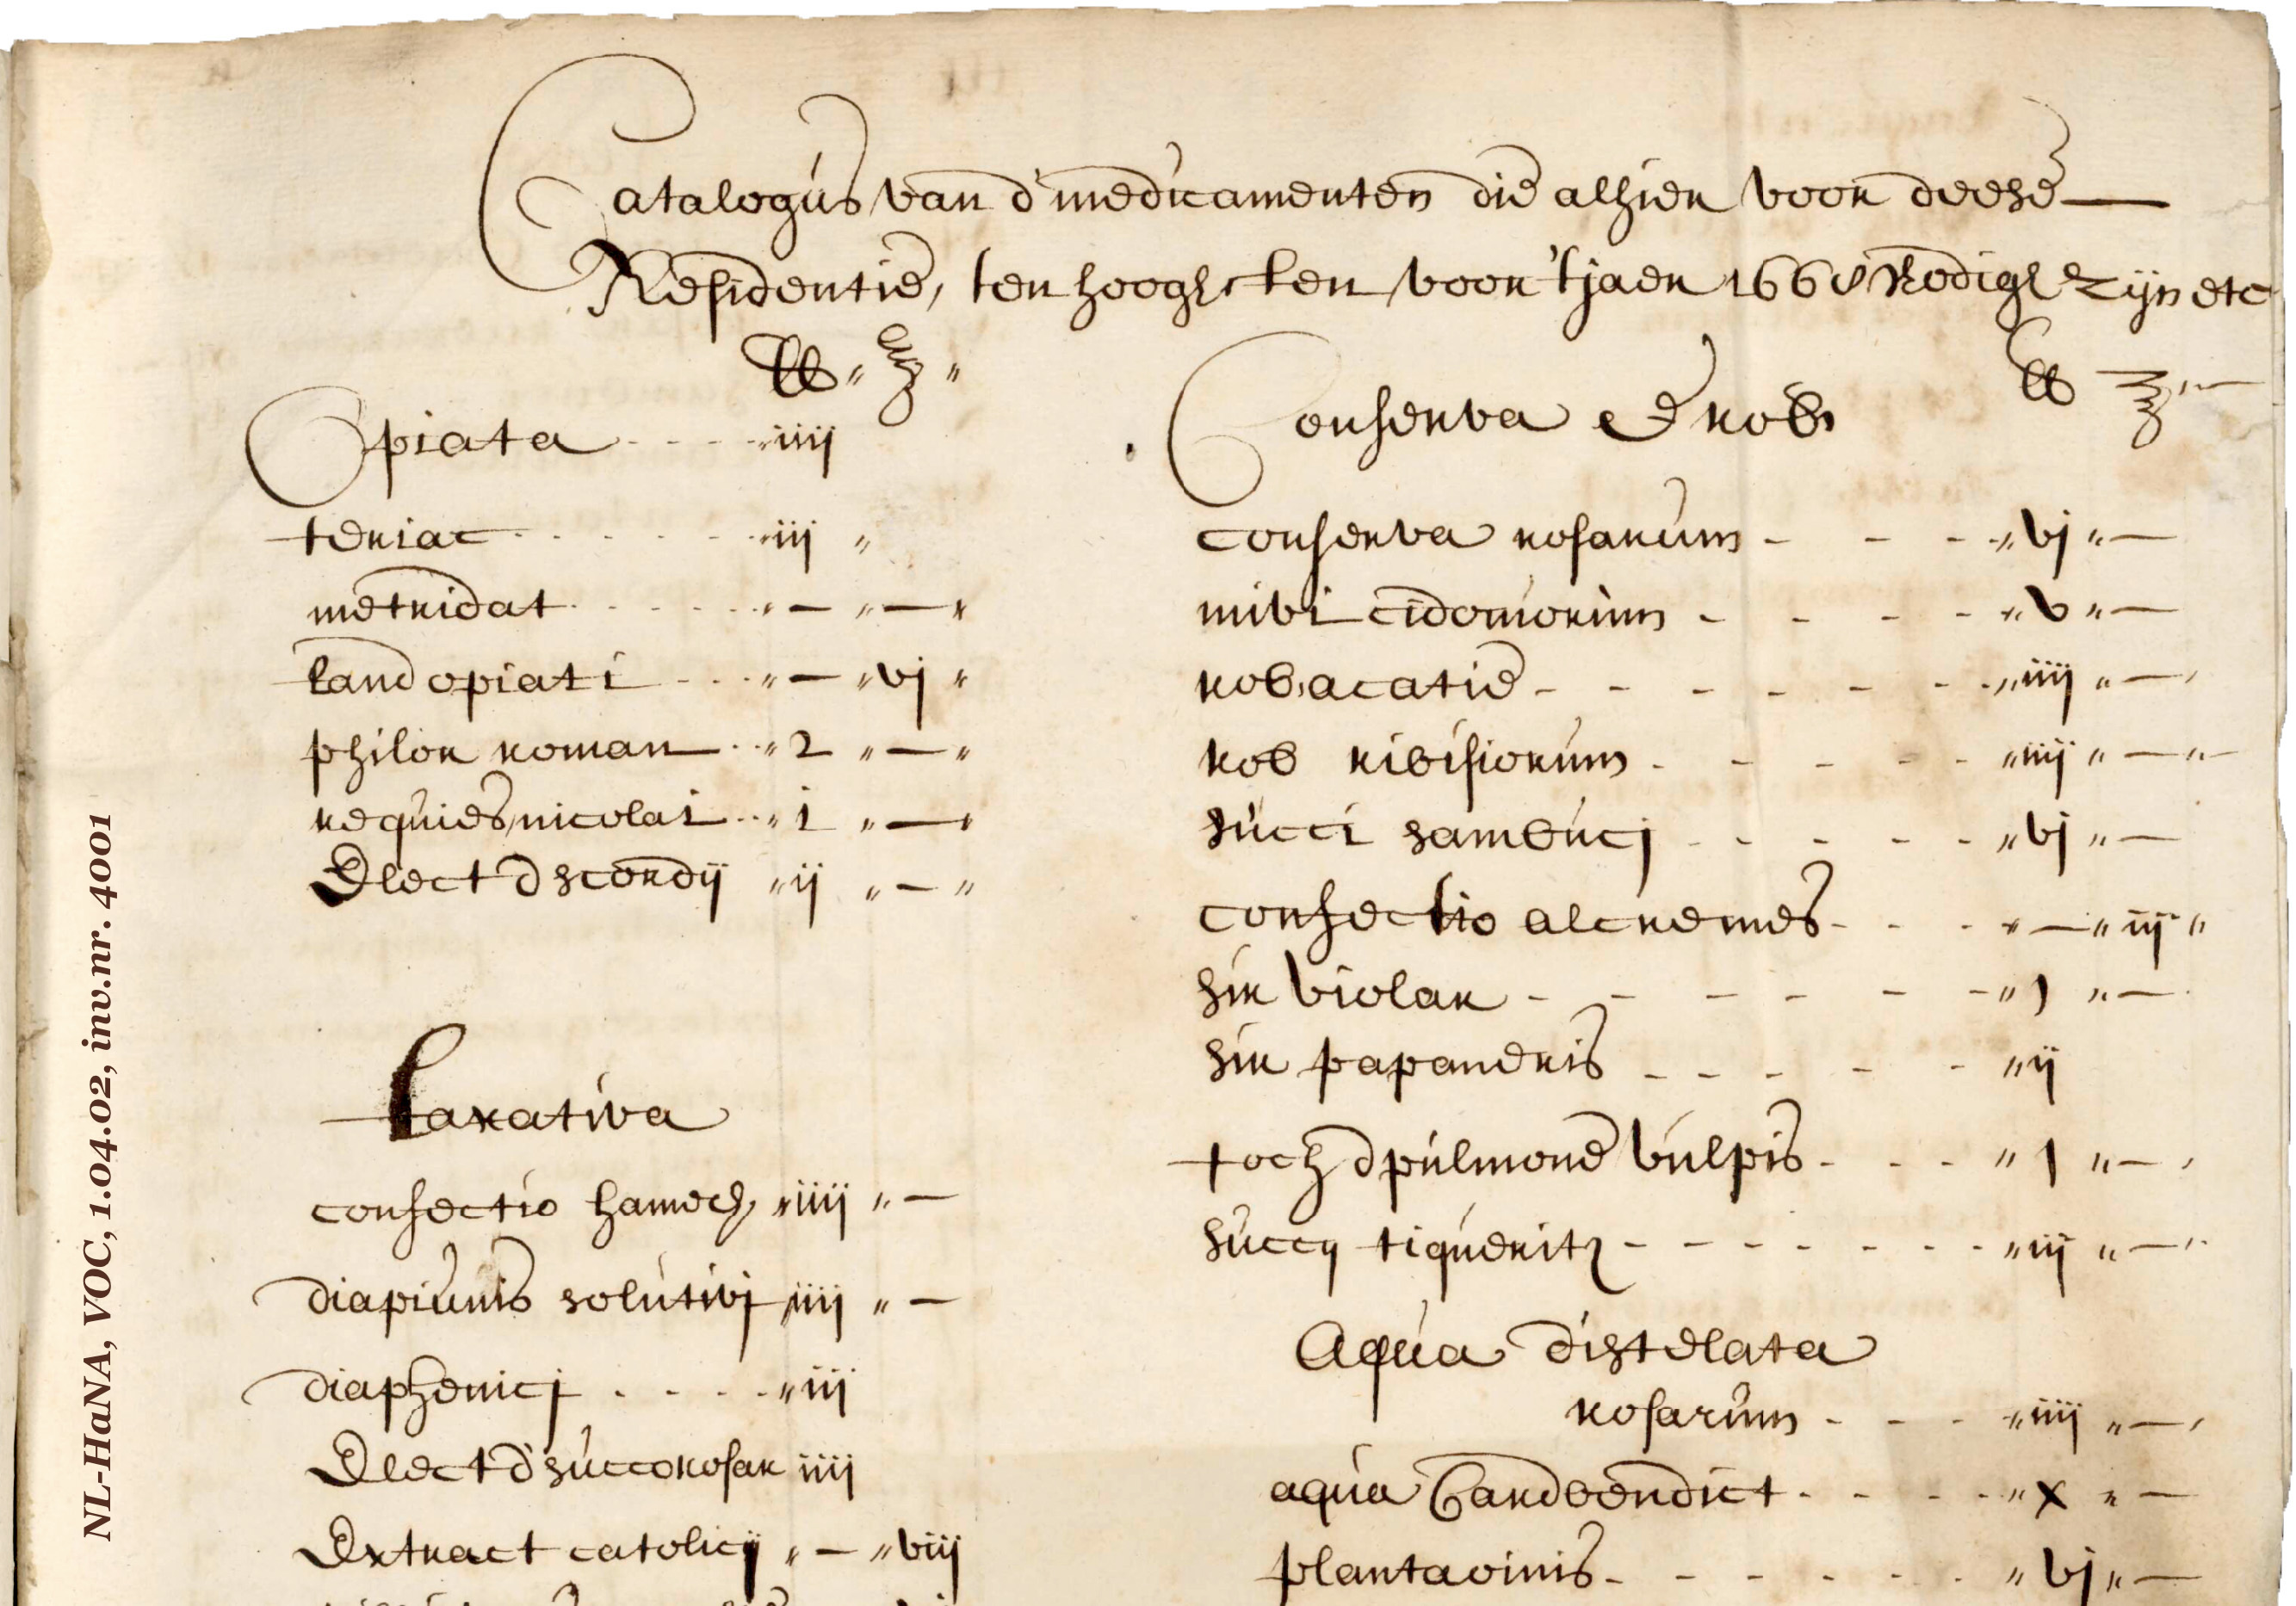 Catalogus van d' medicamenten die alhier voor deese
Residentie, ten hooghsten voor 'tjaer 1668 Nodigh zijn etc
lb " ʒ "
Opiata - - - - " iiij
teriac - - - - " iij "
metridat - - - - " — " — "
laud opiati - - - " — " vj "
philon roman - - " 2 " — "
requies nicolai - - " 1 " — "
Elect d scordij " ij " — "
Laxativa
confectio hamech " iiij " —
diaprunis solutivi " iiij " —
diaphenicj - - - - " iij
Elect d' succo rosar iiij
Extract catolicij " — " viij
lb ʒ " —
Conserva & rob
conserva rosarum - - - " vj " —
mivi cidoniorum - - - - " v " —
rob acatie - - - - - - " iiij " —
rob ribisiorum - - - - - " iiij " — " —
succi sambucj - - - - - " vj " —
confectio alcremes - - - " — " iij "
sir violar - - - - - - " j " —
sir papaueris - - - - - " ij
loch d pulmone vulpis - - - " j " —
succij liqueritz - - - - - - - " iij " —
Aqua distelata
rosarum - - - " iiij " —
aqua Cardbendict - - - - " x " —
plantaginis - - - - - - " vj " —
NL-HaNA, VOC, 1.04.02, inv.nr. 4001